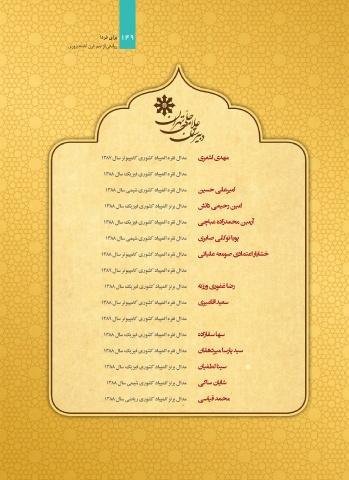 ۱۴۹
برای فردا
روایتی از نیم قرن
دبیرستان علامه حلی تهران
مهدی اشعری مدال نقره المپیاد کشوری کامپیوتر سال ۱۳۸۷
مدال نقره المپیاد کشوری فیزیک سال ۱۳۸۸
امیرعلی حسین مدال نقره المپیاد کشوری شیمی سال ۱۳۸۸
امین رحیمی دانش مدال برنز المپیاد کشوری کامپیوتر سال ۱۳۸۸
آرمین محمدزاده مدال نقره المپیاد کشوری فیزیک سال ۱۳۸۸
پویا توکلی صابری مدال نقره المپیاد کشوری شیمی سال ۱۳۸۸
خشایار اعتمادی صومعه علیائی مدال نقره المپیاد کشوری کامپیوتر سال ۱۳۸۸
مدال نقره المپیاد کشوری کامپیوتر سال ۱۳۸۹
رضا غفوری ورزنه مدال برنز المپیاد کشوری فیزیک سال ۱۳۸۸
سعید مدال نقره المپیاد کشوری کامپیوتر سال ۱۳۸۸
مدال نقره المپیاد کشوری کامپیوتر سال ۱۳۸۹
سها سقازاده مدال نقره المپیاد کشوری فیزیک سال ۱۳۸۸
سید پارسا میردهقان مدال برنز المپیاد کشوری فیزیک سال ۱۳۸۸
سینا لطفیان مدال برنز المپیاد کشوری فیزیک سال ۱۳۸۸
شایان ساکی مدال برنز المپیاد کشوری شیمی سال ۱۳۸۸
محمد قیاسی مدال برنز المپیاد کشوری ریاضی سال ۱۳۸۸